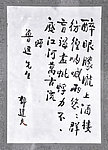 醉眼朦朧上酒樓
彷徨吶喊兩悠悠群
盲竭盡蚍蜉力不
廢江河萬古流
魯迅先生
郁達夫